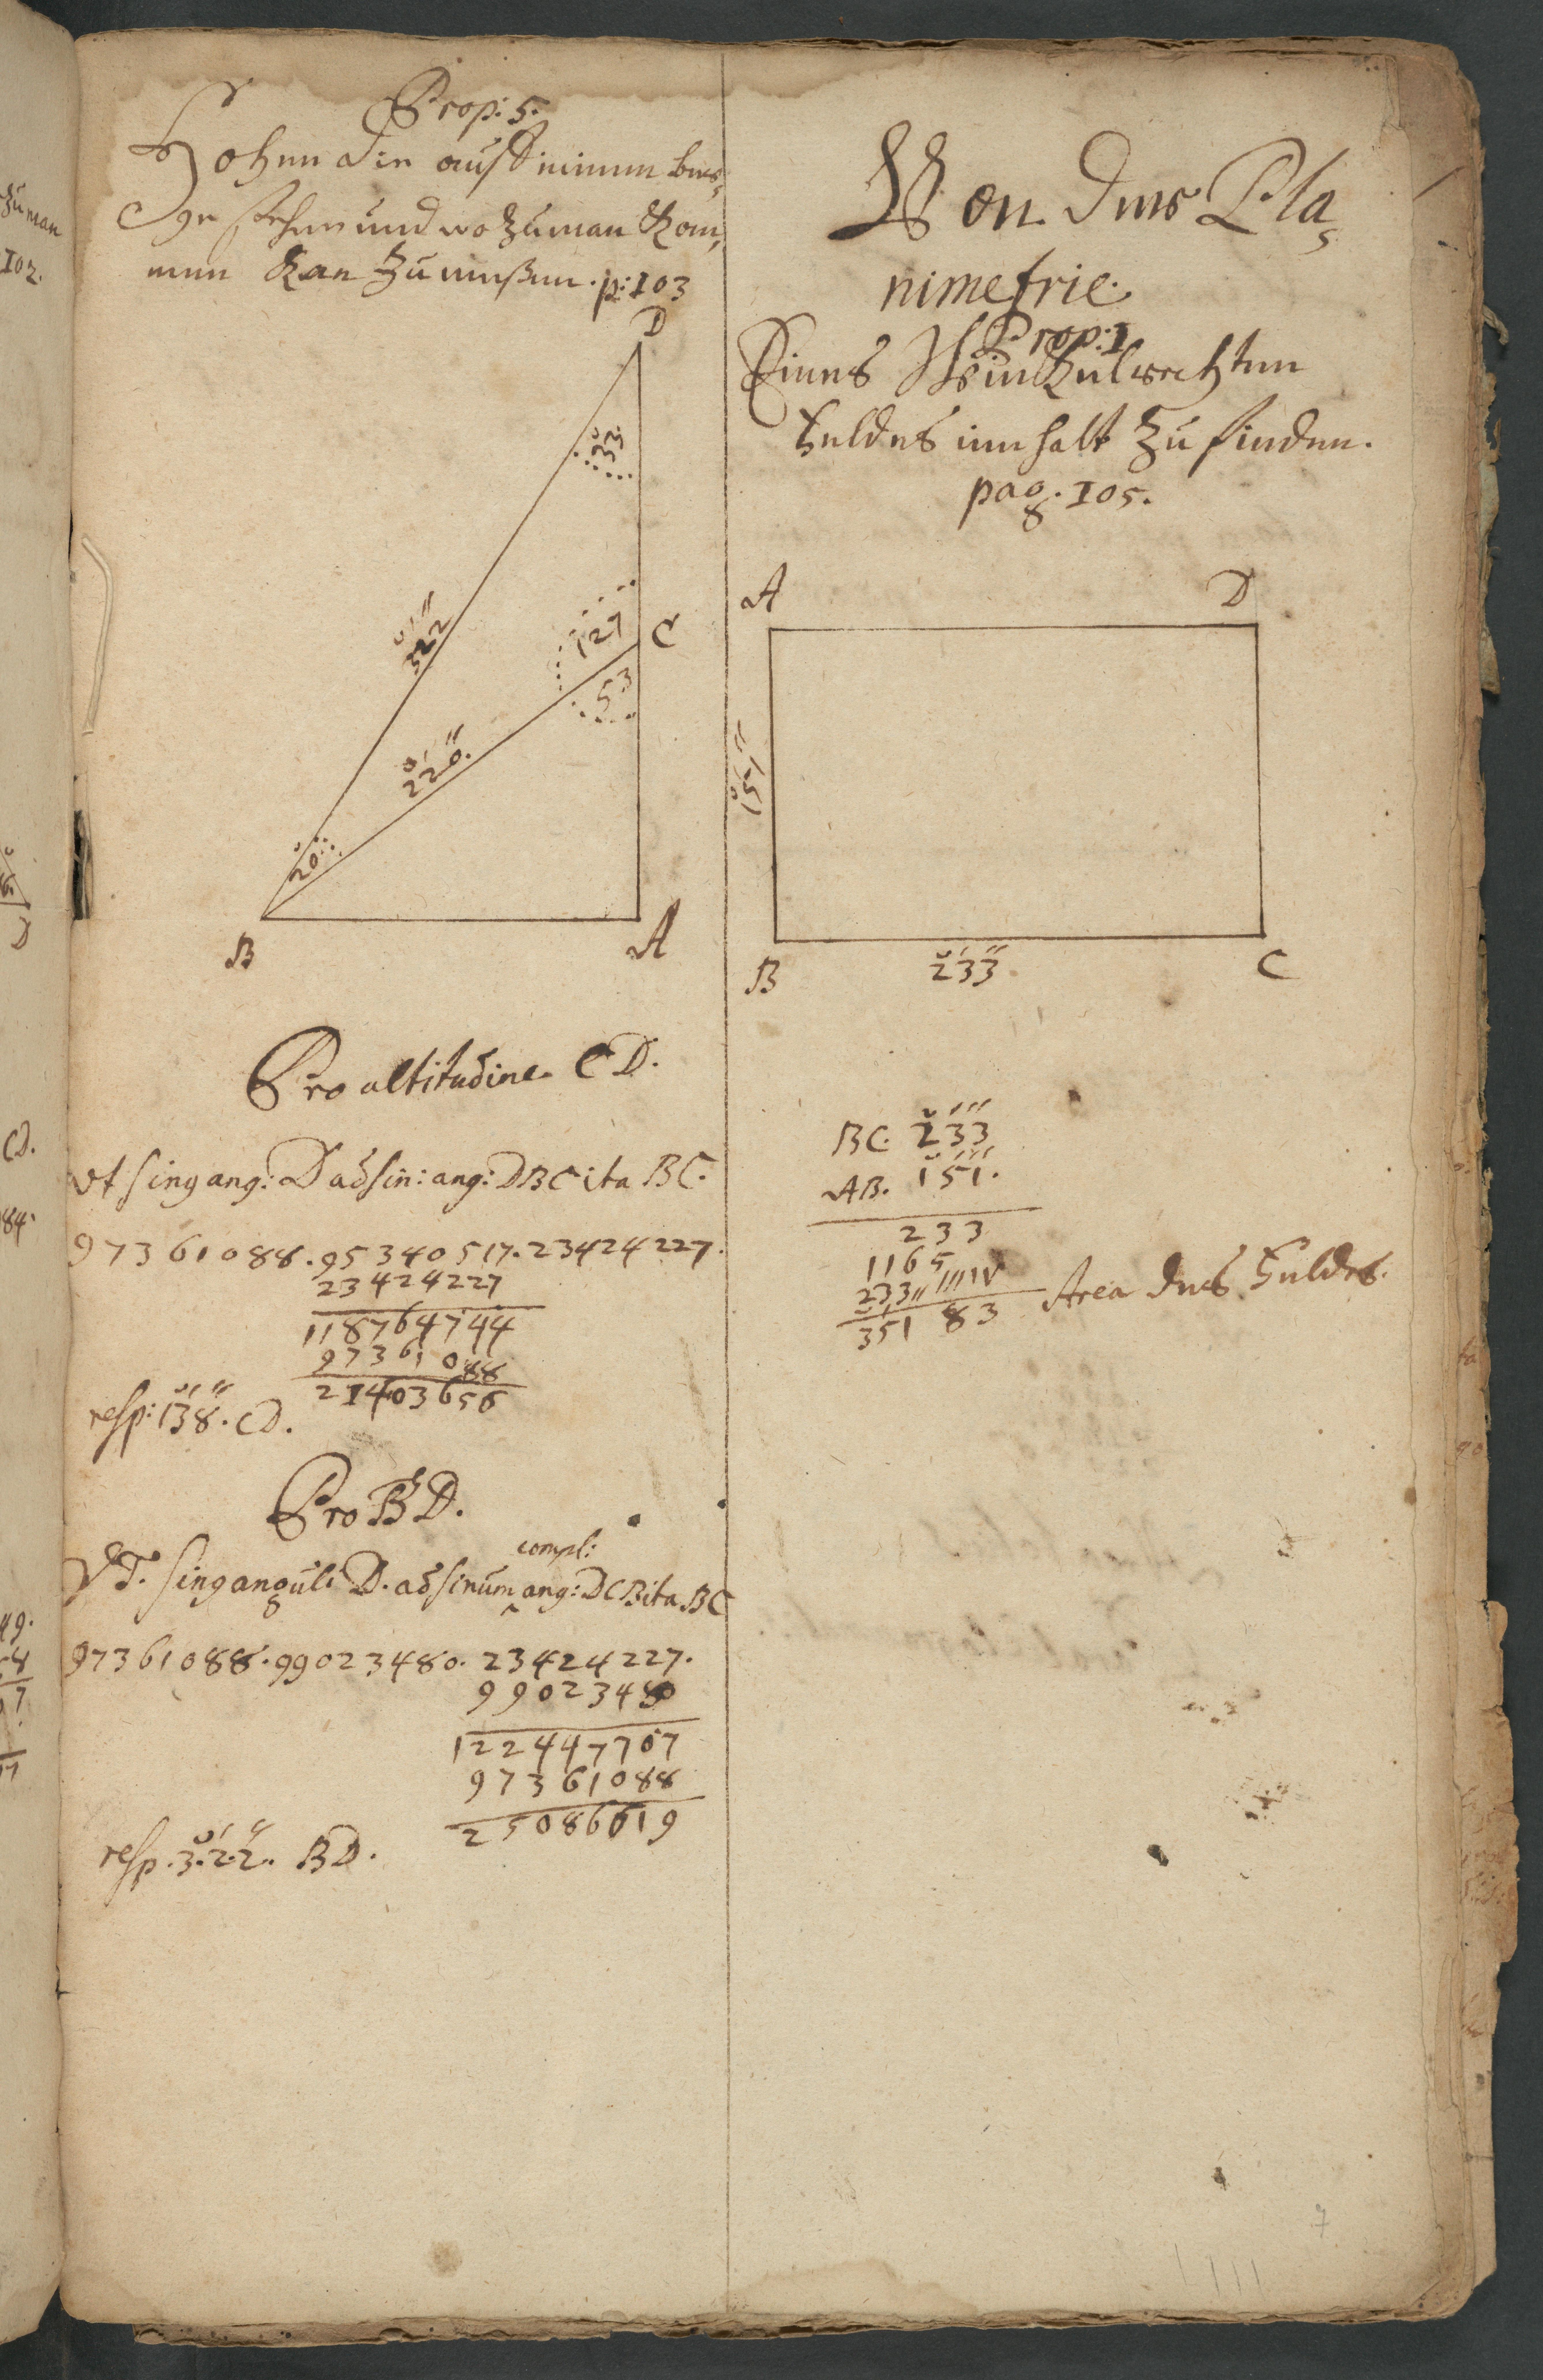 Prop: 5.
Hohen die auf einem ber,
ge stehen und wo zu man kom,
men kan zu meßen. p: 103
D
33
322
127
C
53
220.
20
B
A
Pro altitudine CD.
Vt sin ang: D ad sin: ang: DBC ita BC.
97361088. 95340517. 23424227.
23424227
118764744
97361088
21403656
resp: 138. CD.
Pro BD.
compl:
VT. sin anguli D. ad sinum ^ ang: DCB ita BC
97361088. 99023480. 23424227.
99023480
122447707
97361088
25086619
resp. 3. 2. 2. BD.
Von der Pla,
nimetrie.
Prop: I
Eines Winkelrechten
Feldes innhalt zu finden.
pag. 105.
A
D
151
B
233
C
BC. 233
AB. 151.
233
1165
233
351 83 Area des Feldes.
7
zu man
102.
D
CD.
84.